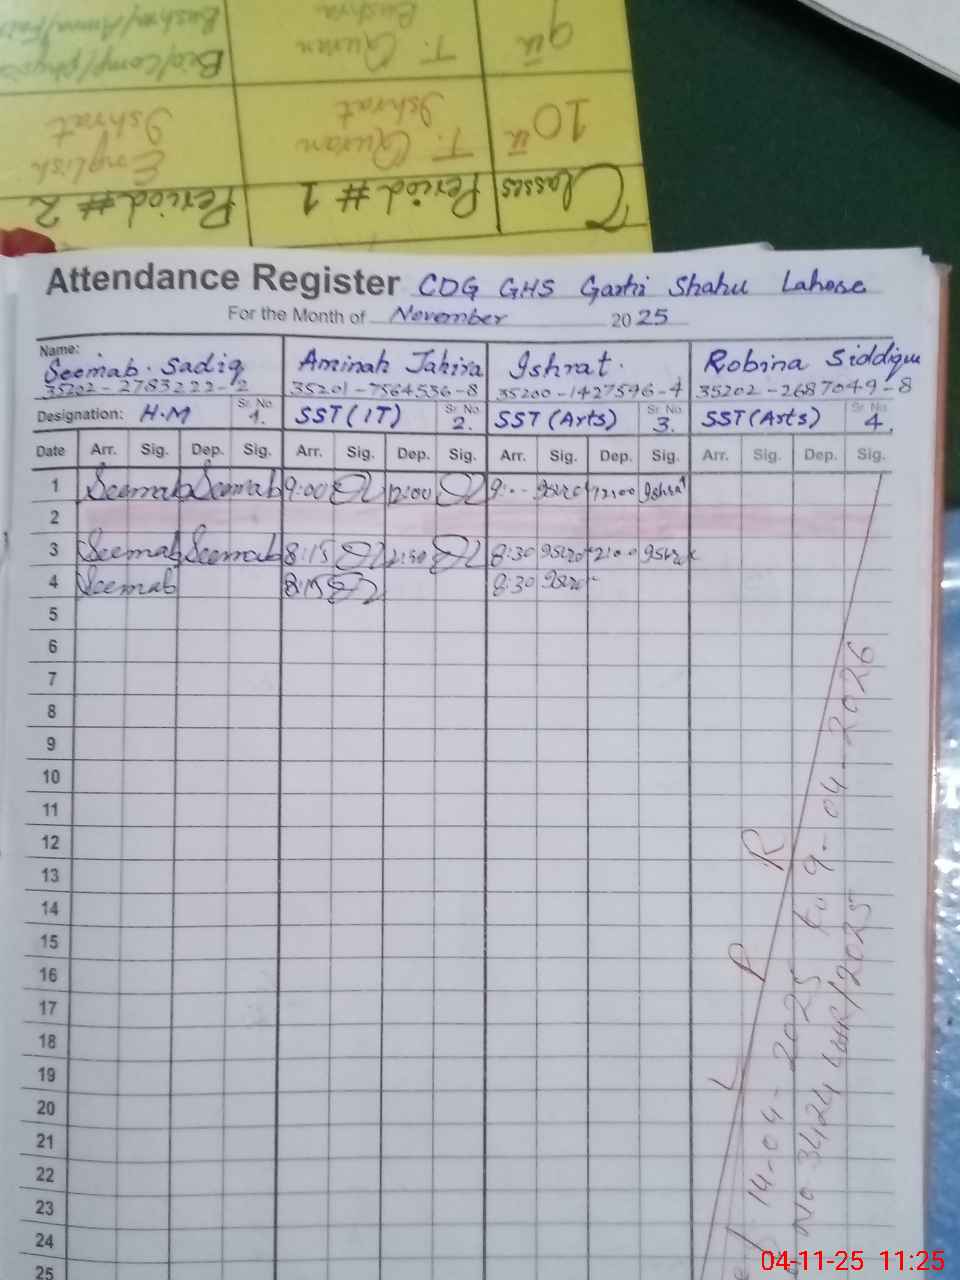 Classes Period # 1 Period # 2
10th T. Quran Ishrat English Ishrat
9th T. Quran Bushra Bio/Comp/physics
Attendance Register CDG GHS Garhi Shahu Lahore
For the Month of November 2025
Name: Seemab Sadiq Aminah Tahira Ishrat Robina Siddique
35202-2783222-2 35201-7564536-8 35200-1427596-4 35202-2687049-8
Designation: H.M Sr. No. 1. SST (IT) Sr. No. 2. SST (Arts) Sr. No. 3. SST (Arts) Sr. No. 4.
Date Arr. Sig. Dep. Sig. Arr. Sig. Dep. Sig. Arr. Sig. Dep. Sig. Arr. Sig. Dep. Sig.
1 Seemab Seemab 9:00 12:00 9:-- Ishrat 12:00 Ishrat
2
3 Seemab Seemab 8:15 8:30 Ishrat Ishrat
4 Seemab 8:15 8:30 Ishrat
5
6
7
8
9
10
11
12
13
14
15
16
17
18
19
20
21
22
23
24
25
L P R
14-04-2025 to 9-04-2026
No 3424 LHR/2025
04-11-25 11:25